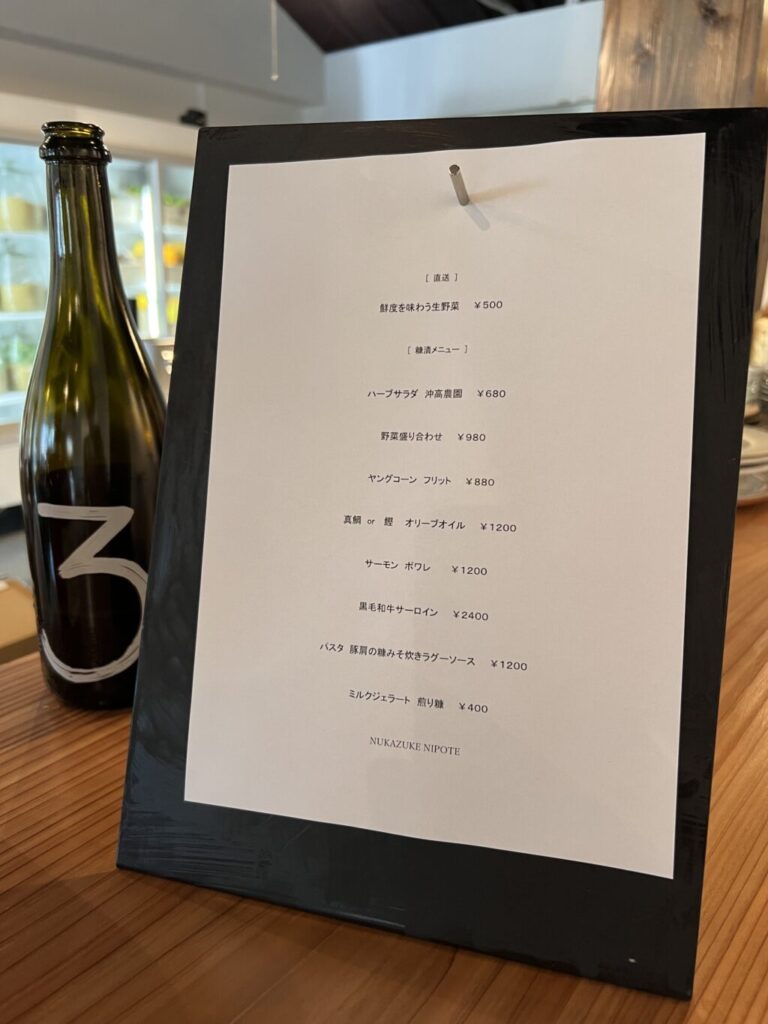 [ 直送 ]
鮮度を味わう生野菜 ￥500
[ 糠漬メニュー ]
ハーブサラダ 沖高農園 ￥680
野菜盛り合わせ ￥980
ヤングコーン フリット ￥880
真鯛 or 鰹 オリーブオイル ￥1200
サーモン ポワレ ￥1200
黒毛和牛サーロイン ￥2400
パスタ 豚肩の糠みそ炊きラグーソース ￥1200
ミルクジェラート 煎り糠 ￥400
NUKAZUKE NIPOTE
3